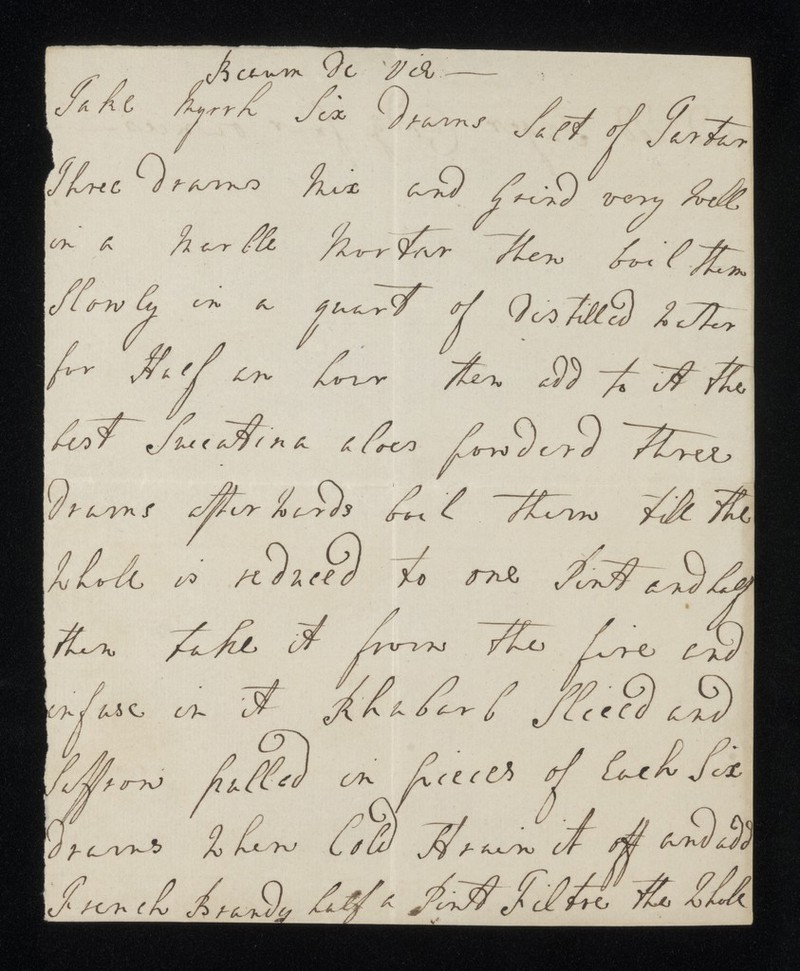 Beaum De Vie —
Take Myrrh Six Drams Salt of Tartar
Three Drams Mix and Grind very Well
in a Marble Mortar then boil them
Slowly in a quart of Distilled Water
for Half an hour then add to it the
best Succatina aloes powderd three
Drams after Wards boil them till the
Whole is reduced to one Pint and half
then take it from the fire and
infuse in it Rhubarb Sliced and
Saffron pulled in pieces of Each Six
Drams When Cold Strain it off and add
French Brandy half a Pint Filtre the Whole